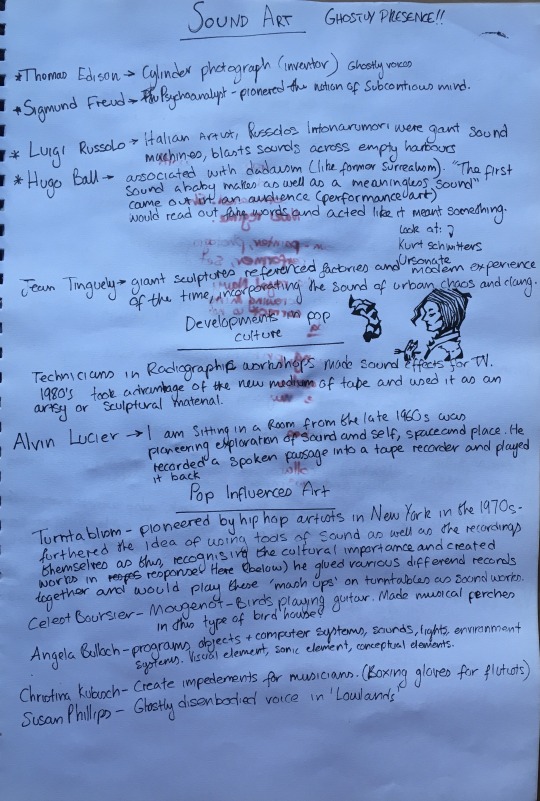 SOUND ART GHOSTLY PRESENCE!!
*Thomas Edison → Cylinder photograph (inventor) Ghostly voices
*Sigmund Freud → Psychoanalyst - pionered the notion of Subcontious mind.
* Luigi Russolo → Italian Artist, Russolos Intonarumori were giant sound
machines, blasts sounds across empty harbours
* Hugo Ball → associated with dadaism (like former Surrealism). "The first
sound a baby makes as well as a meaningless sound"
came out in an audience (performance art)
would read out fake words and acted like it meant something.
Look at:
Kurt Schwitters
Ursonate
Jean Tinguely → giant sculptures referenced factories and modern experience
of the time, incorporating the sound of urban chaos and clang.
Developments in pop
culture
Technicians in Radiographic workshops made sound effects for TV.
1980's took advantage of the new medium of tape and used it as an
artsy or sculptural material.
Alvin Lucier → I am Sitting in a Room from the late 1960s was
pioneering exploration of sound and self, space and place. He
recorded a spoken passage into a tape recorder and played
it back
Pop Influences Art
Turntablism - pioneered by hip hop artists in New York in the 1970s -
furthered the idea of using tools of sound as well as the recordings
themselves as thus, recognising the cultural importance and created
works in response! Here (below) he glued various differend records
together and would play these 'mash ups' on turntables as sound works.
Celest Boursier - Mougenot - Birds playing guitar. Made musical perches
in this type of bird house
Angela Bulloch - programs, objects + computer systems, sounds, lights, environment
systems. Visual element, sonic element, conceptual elements.
Christina Kubisch - Create impedements for musicians. (Boxing gloves for flutists)
Susan Phillips - Ghostly disenbodied voice in 'Lowlands'